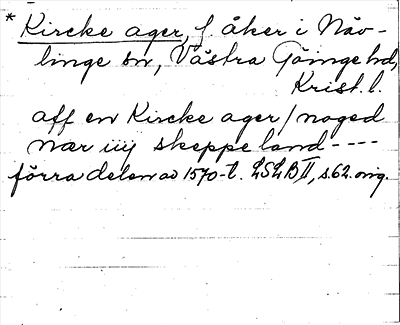 * Kircke ager, f åker i Näv-
linge sn, Västra Göinge hd,
Krist. l.
aff en Kircke ager / noged
nær iiij skeppe land ----
förra delen av 1570-t. LSLB II, s. 62. orig.